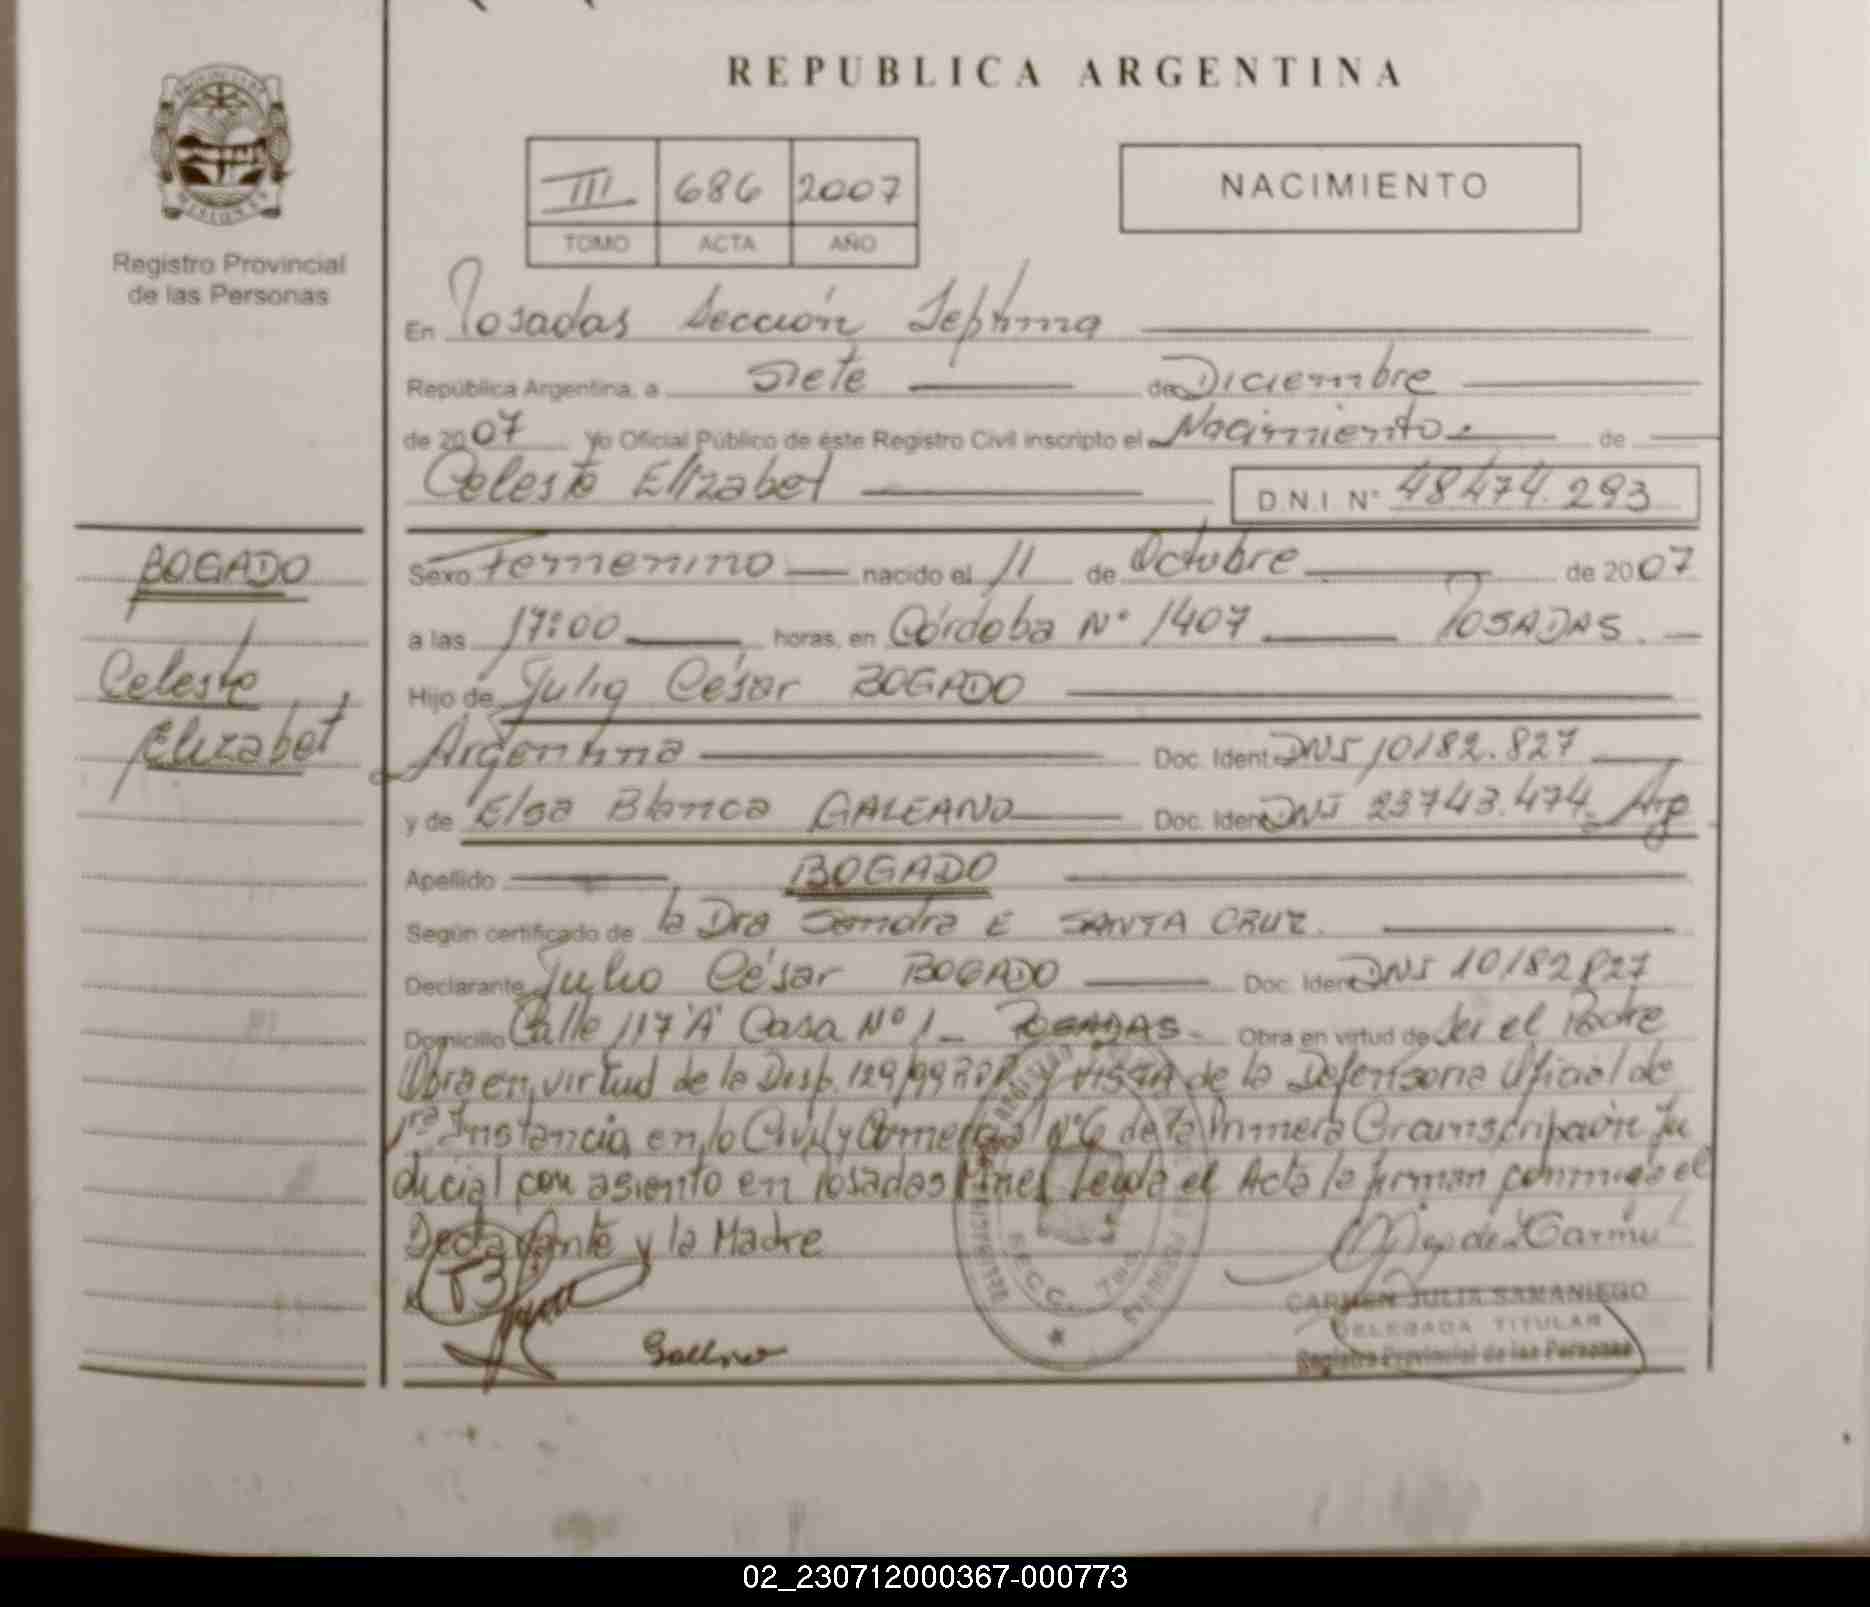 REPUBLICA ARGENTINA
Registro Provincial
de las Personas
III 686 2007
TOMO ACTA AÑO
NACIMIENTO
En Posadas Sección Septima
República Argentina, a siete de Diciembre
de 2007 Yo Oficial Público de éste Registro Civil inscripto el Nacimiento de
Celeste Elizabet D.N.I N° 48474.293
BOGADO
Celeste
Elizabet
Sexo Femenino nacido el 11 de Octubre de 2007
a las 17:00 horas, en Córdoba N° 1407 POSADAS.
Hijo de Julio César BOGADO
Argentina Doc. Ident DNI 10182.827
y de Elsa Blanca GALEANO Doc. Ident DNI 23743.474 Arg
Apellido BOGADO
Según certificado de la Dra Sandra E SANTA CRUZ.
Declarante Julio César BOGADO Doc. Ident DNI 10182827
Domicilio Calle 117 "A" Casa N° 1 _ POSADAS- Obra en virtud de ser el Padre
Obra en virtud de la Disp. 129/99 y VISTA de la Defensoria Oficial de
1ra Instancia en lo Civil y Comercial N°6 de la Primera Circunscripción Ju
dicial con asiento en Posadas Mnes Leida el Acta la firman conmigo el
Declarante y la Madre
SECC. 7ma
CARMEN JULIA SAMANIEGO
DELEGADA TITULAR
Registro Provincial de las Personas
02_230712000367-000773